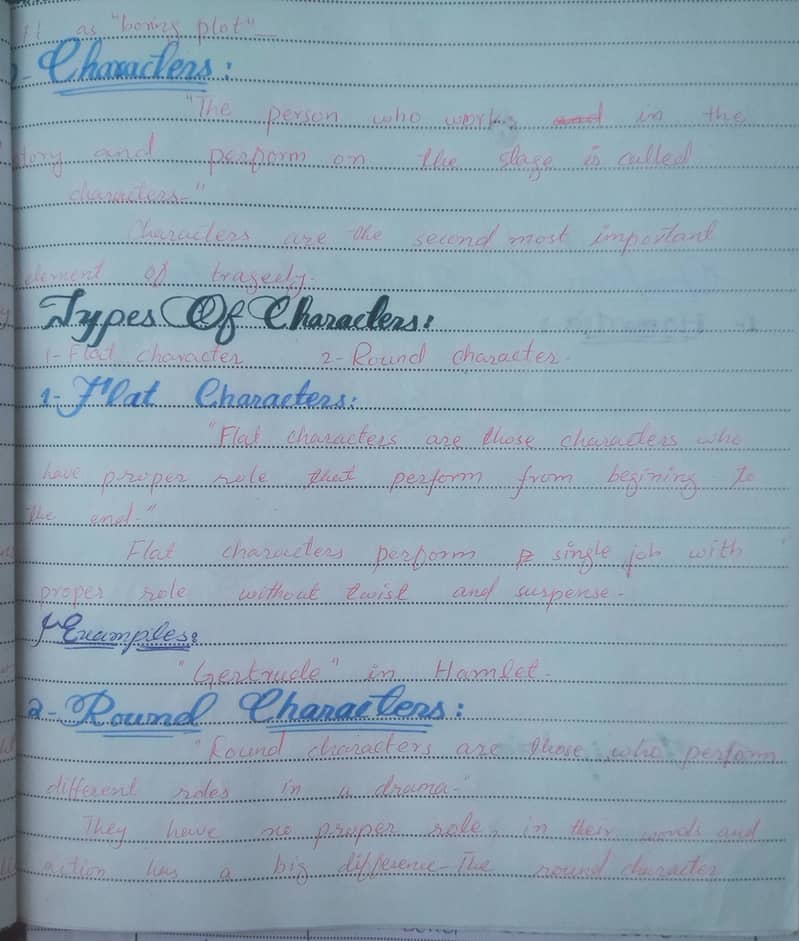 as "boring plot"
Characters:
"The person who work in the
story and perform on the stage is called
characters-"
Characters are the second most important
element of tragedy.
Types Of Characters:
1- Flat character 2- Round character.
1- Flat Characters:
"Flat characters are those characters who
have proper role that perform from begining to
the end."
Flat characters perform single job with
proper role without twist and suspense-
Examples:
"Gertrude" in Hamlet-
2- Round Characters:
"Round characters are those who perform
different roles in a drama-"
They have no proper role, in their words and
action has a big difference- The round character